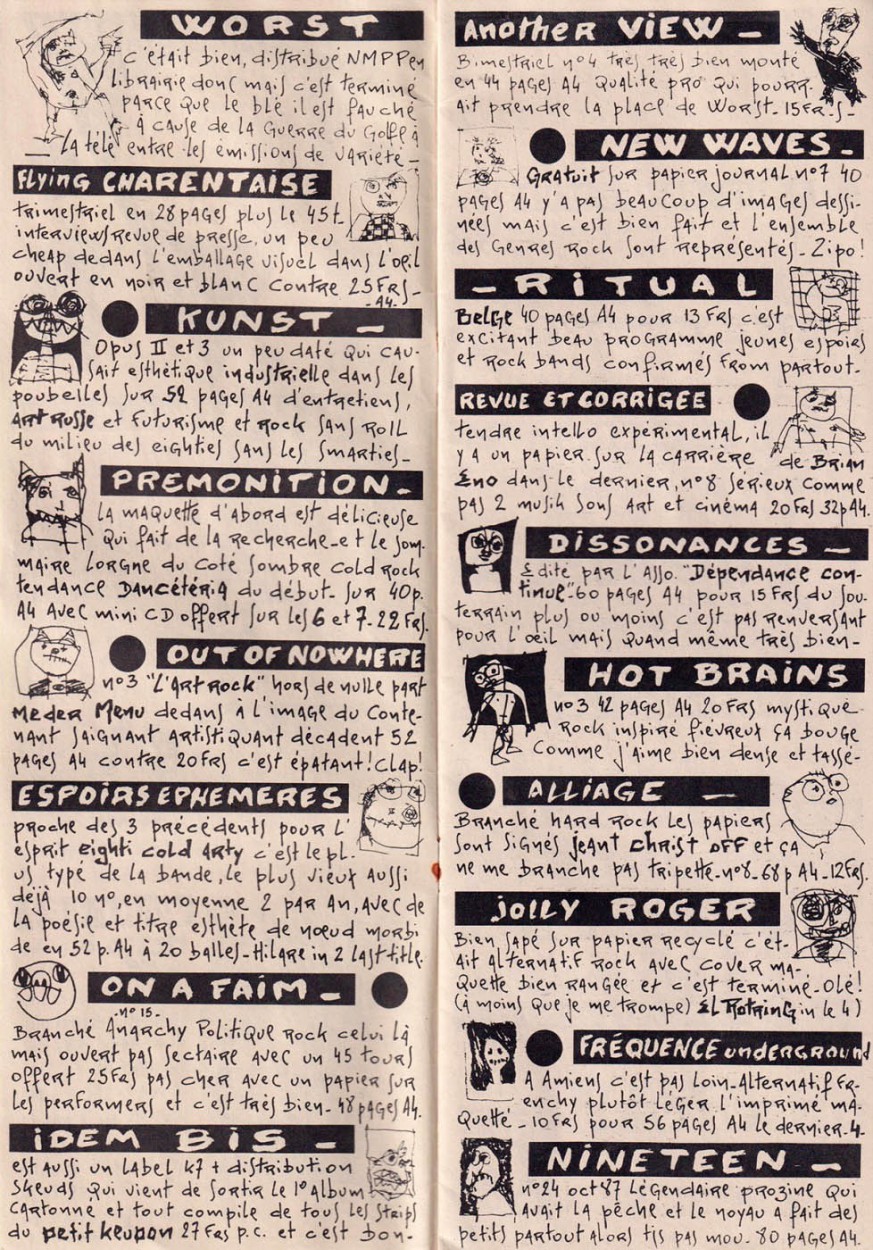 WORST
c'était bien, distribué NMPP en
librairie donc mais c'est terminé
parce que le blé il est fauché
à cause de la Guerre du Golfe à
la télé entre les émissions de variété -
Flying CHARENTAISE
trimestriel en 28 pages plus le 45t.
interviews revue de presse, un peu
cheap dedans l'emballage visuel dans l'oeil
ouvert en noir et blanc contre 25 Frs -
- A4.
KUNST -
Opus II et 3 un peu daté qui cau-
sait esthétique industrielle dans les
poubelles sur 52 pages A4 d'entretiens,
Art Russe et futurisme et rock sans roll
du milieu des eighties sans les smarties -
PREMONITION -
La maquette d'abord est délicieuse
qui fait de la recherche - et le som-
maire lorgne du coté sombre cold rock
tendance Dancétéria du début - sur 40 p.
A4 avec mini CD offert sur les 6 et 7 - 22 Frs.
OUT OF NOWHERE
n°3 "L'Art Rock" hors de nulle part
Meder Menu dedans à l'image du conte-
nant saignant artistiquant décadent 52
pages A4 contre 20 Frs c'est épatant! Clap!
ESPOIRS EPHEMERES
proche des 3 précédents pour l'
esprit eighti cold arty c'est le pl-
us typé de la bande, le plus vieux aussi
déjà 10 n°, en moyenne 2 par an, avec de
la poésie et titre esthète de nœud morbi
de en 52 p. A4 à 20 balles - Hilare in 2 last title.
ON A FAIM -
- n° 15 -
Branché Anarchy Politique rock celui là
mais ouvert pas sectaire avec un 45 tours
offert 25 Frs pas cher avec un papier sur
les performers et c'est très bien - 48 pages A4.
IDEM BIS -
est aussi un label k7 + distribution
skeuds qui vient de sortir le 1° album
cartonné et tout compile de tous les strips
du petit keupon 27 Frs p.c. et c'est bon -
Another VIEW -
Bimestriel n°4 très très bien monté
en 44 pages A4 qualité pro qui pourr-
ait prendre la place de Worst - 15 Frs -
NEW WAVES -
Gratuit sur papier journal n°7 40
pages A4 y'a pas beaucoup d'images dessi-
nées mais c'est bien fait et l'ensemble
des Genres Rock sont représentés - Zipo!
- RITUAL
Belge 40 pages A4 pour 13 Frs c'est
excitant beau programme jeunes espoirs
et Rock bands confirmés from partout -
REVUE ET CORRIGEE
tendre intello expérimental, il
y a un papier sur la carrière de Brian
Eno dans le dernier, n°8 sérieux comme
pas 2 musik sons art et cinéma 20 Frs 32p A4.
DISSONANCES -
Edité par l'Asso. "Dépendance con-
tinue" 60 pages A4 pour 15 Frs du sou-
terrain plus ou moins c'est pas renversant
pour l'oeil mais quand même très bien -
HOT BRAINS
n°3 42 pages A4 20 Frs mystique
Rock inspiré fiévreux ça bouge
Comme j'aime bien dense et tassé -
ALLIAGE -
Branché hard rock les papiers
sont signés jeant christ off et ça
ne me branche pas tripette - n°8 - 68 p A4 - 12 Frs.
jolly ROGER
Bien sapé sur papier recyclé c'ét-
ait alternatif rock avec cover ma-
quette bien rangée et c'est terminé - Olé!
(à moins que je me trompe) El Rotring in le 4)
FRÉQUENCE underground
A Amiens c'est pas loin - Alternatif Fr-
enchy plutôt léger l'imprimé ma-
quetté - 10 Frs pour 56 pages A4 le dernier - 4.
NINETEEN -
n°24 oct 87 Légendaire prozine qui
avait la pêche et le noyau a fait des
petits partout alors tis pas mou - 80 pages A4.